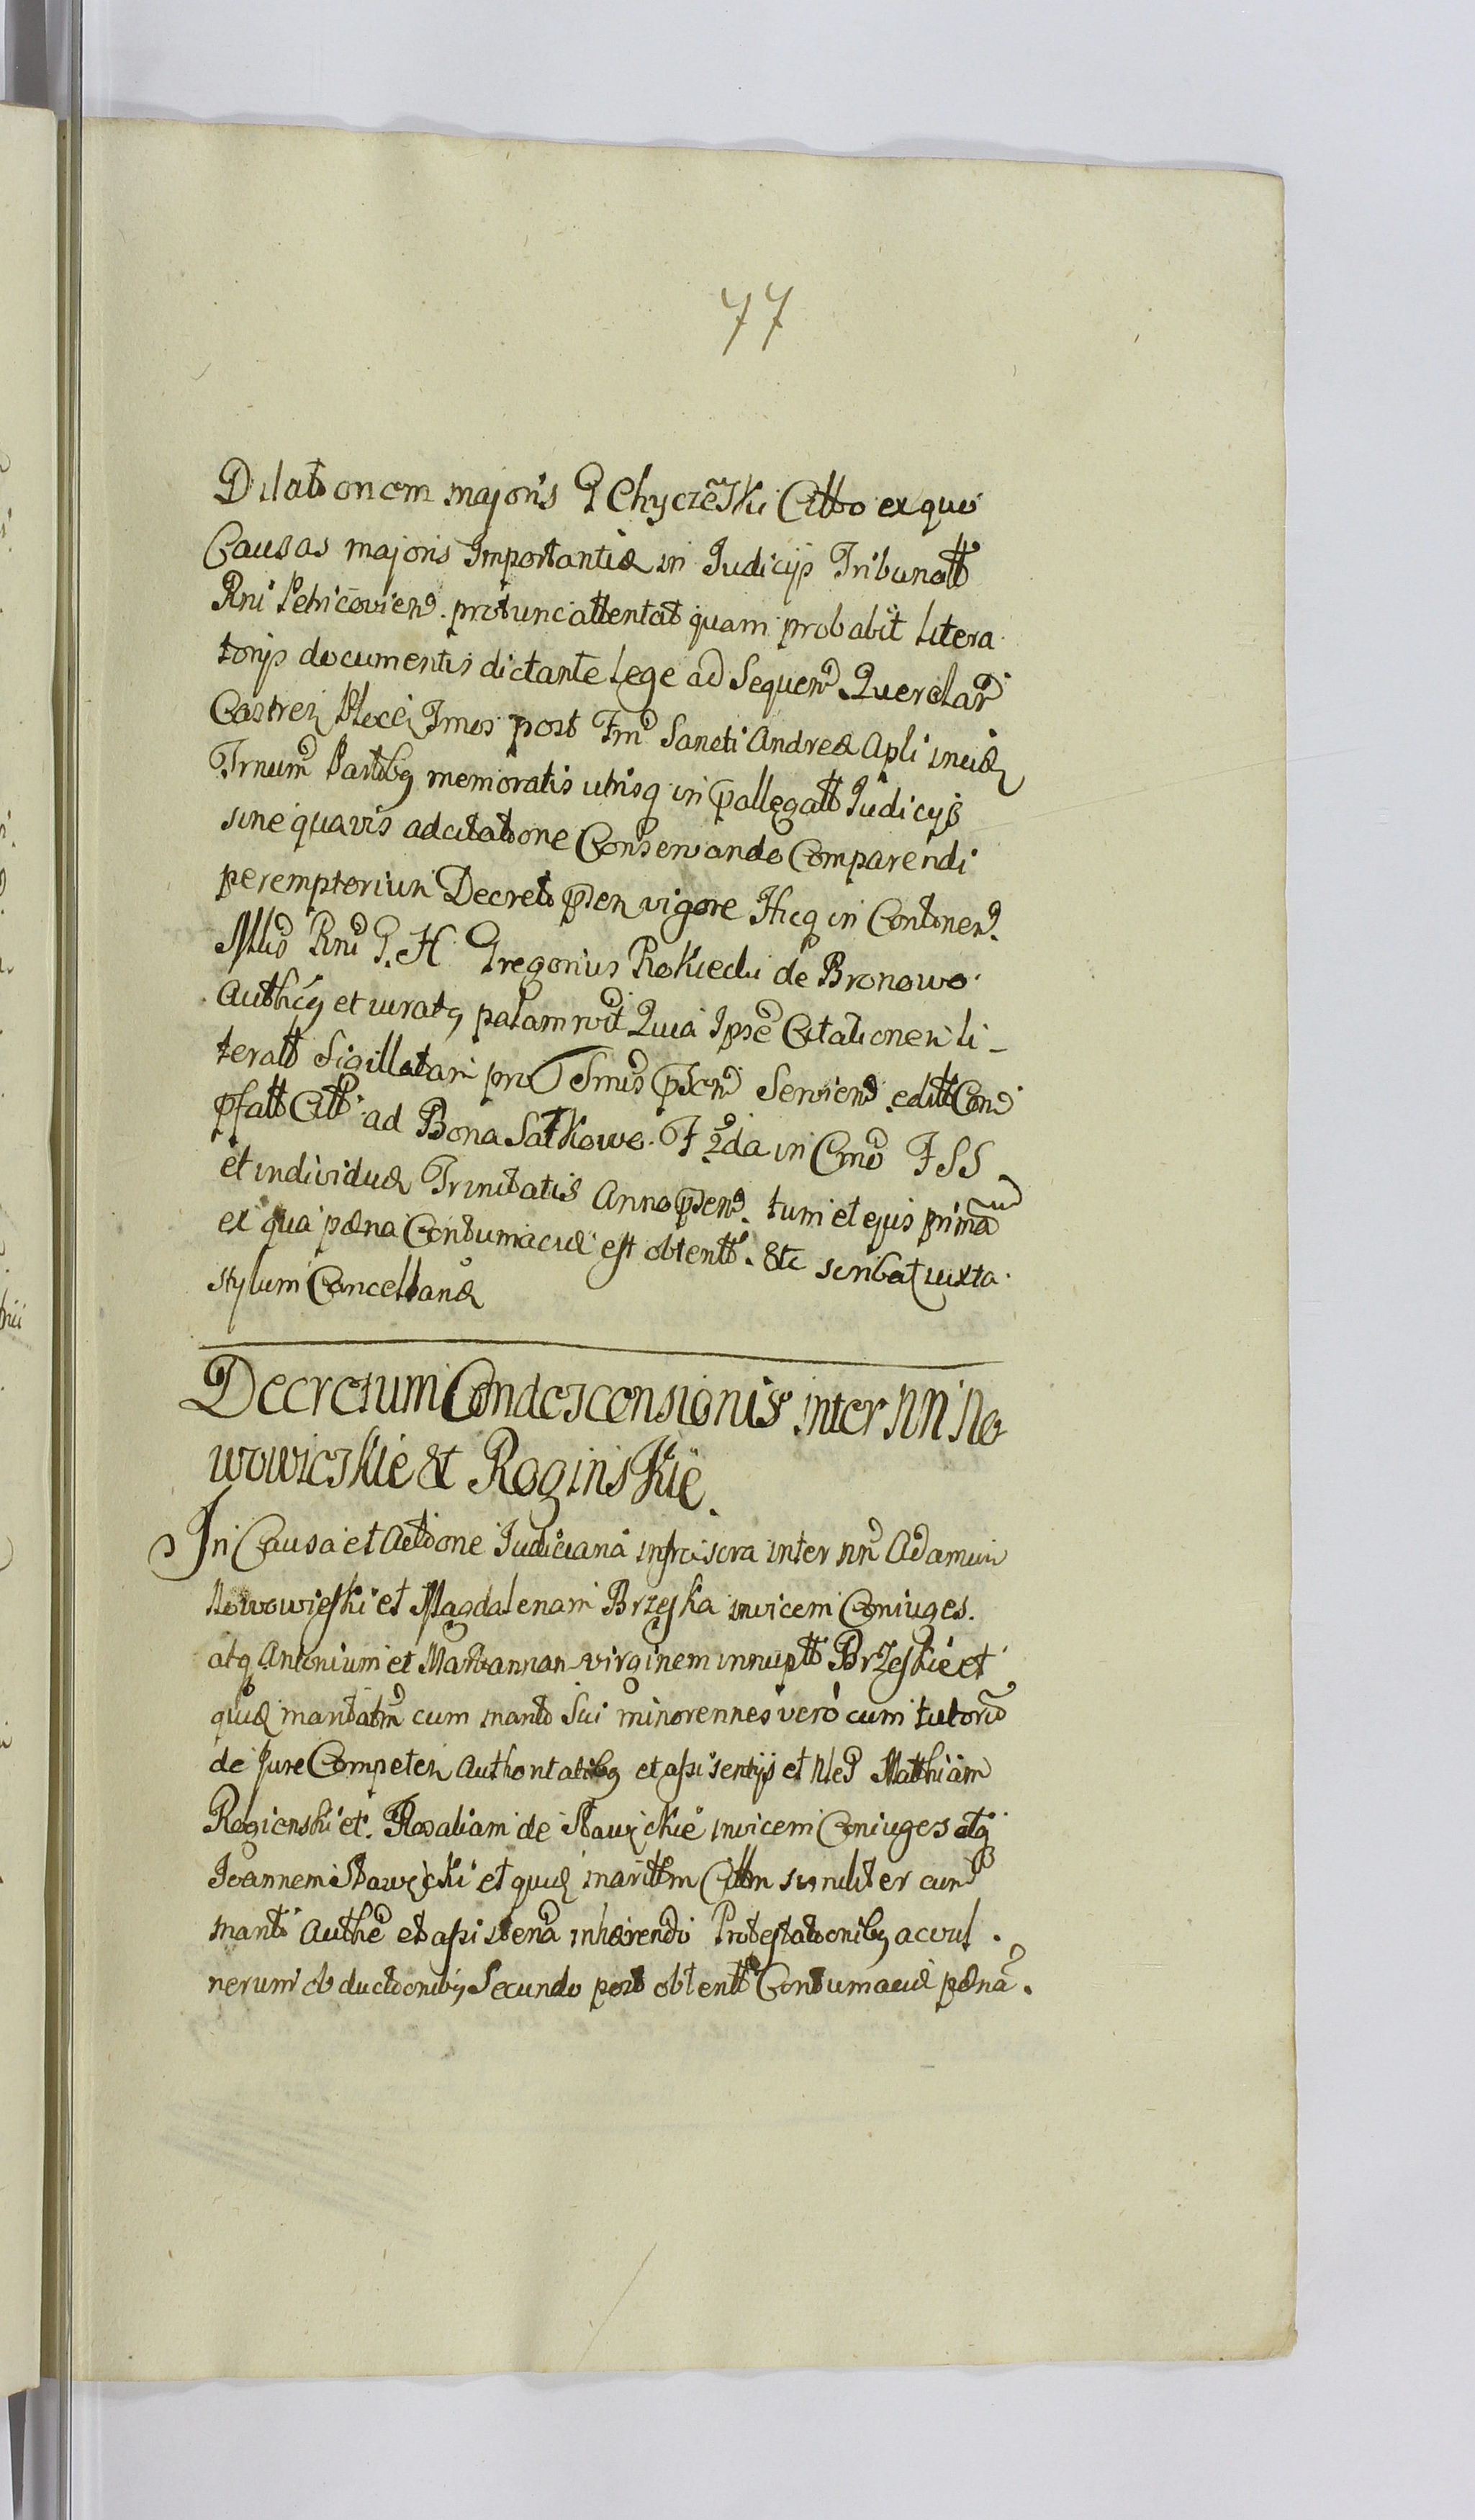 77
Dilationem majoris G Chyczewski Citto ex quo
Causas majoris Importantiæ in Judicijs Tribunatt
Rni Petricovien. protunc attentat quam probabit litera
torijs documentis dictante Lege ad Sequen Querelar
Castren Plocen Imos post Fm Sancti Andreæ Apli inciden
Trnum Partibq memoratis utrisq in pallegatt Judicijs
sine quavis adcitatione Conservando Comparendi
peremptorium Decreto pten vigore Hicq in Continen.
Mtis Rni G. H Gregorius Rokiecki de Bronowo
Authcq et iuratq palam rvit Quia Ipse Citationem li-
teratt Sigillatam pro Tmis pscn Servien edilt Con
pfatt Citt ad Bona Satkowo. F 2da in Cmo F SS
et individuæ Trinitatis Anno psen. tum et ejus prima
ex qua pæna Contumaciæ est obtentt. Etc scribat iuxta
stylum Cancellariæ
Decretum Condescensionis inter NN No
wowieskie et Roginskie.
In Causa et Actione Judiciaria infrascra inter NN Adamum
Nowowieski et Magdalenam Brzeska invicem Coniuges.
atq Antonium et Mariannan virginem innuptt Brzeskie et
quidem maritatm cum marito Sui minorennes vero cum tutorū
de Jure Competen Authoritatibq et assistentijs et Nles Matthiam
Rogienski et Rosaliam de Stawickie invicem Coniuges atq
Joannem Stawicki et quidem marittm Cittm similiter cum
mariti Authe et assistena inhærendo Protestationibq ac vul
nerum obductionibq Secundo post obtentt Contumaciæ pænā.